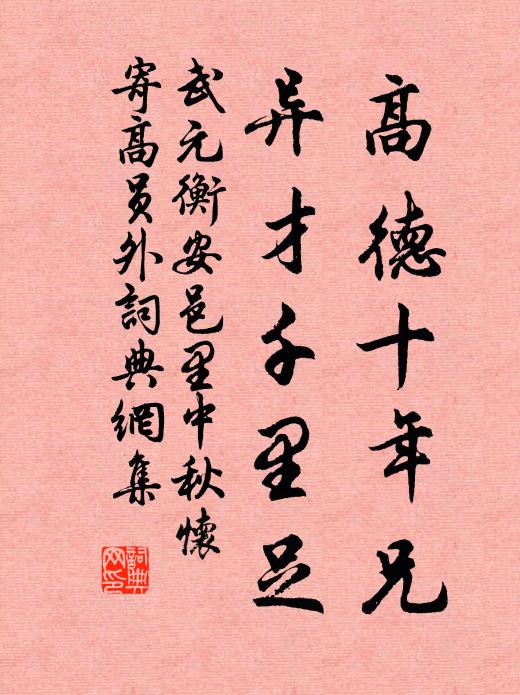 高德十年兄
异才千里足
武元衡安邑里中秋懷
寄高员外詞典網集
詞典
网印